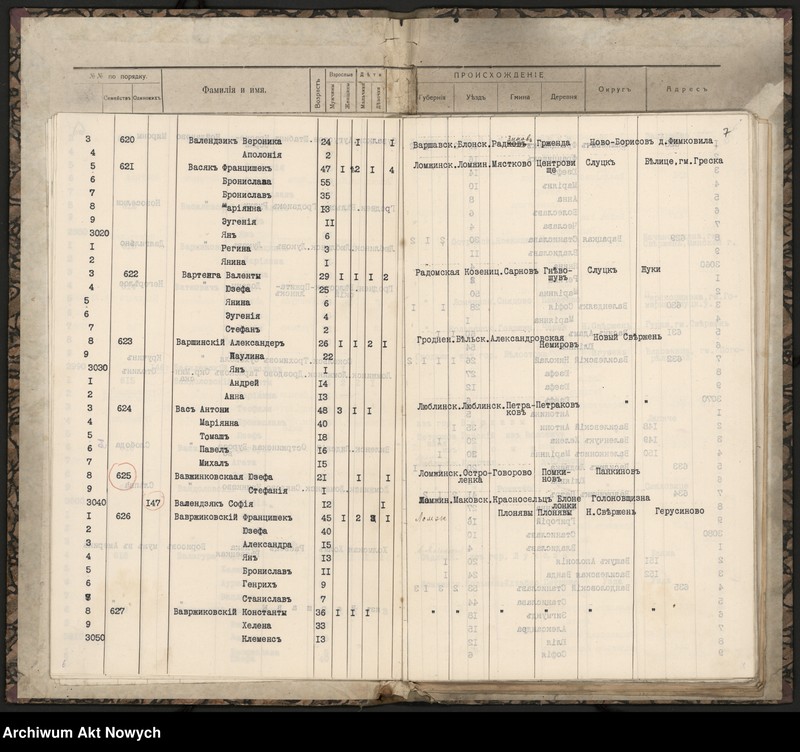 №№ по порядку. Фамилія и имя. Возрастъ Взрослые Дѣти ПРОИСХОЖДЕНІЕ Округъ Адресъ
Семействъ Одинокихъ Мужчины Женщины Мальчики Дѣвочки Губернія Уѣздъ Гмина Деревня
7
3 620 Валендзикъ Вероника 24 I I Варшавск.Блонск. Грженда Ново-Борисовъ д.Фимковила
4 " Аполонія 2
5 621 Васякъ Францишекъ 47 I 2 I 4 Ломжинск.Ломжин.Мястково Центрови Слуцкъ Бѣлице,гм.Греска
ще
6 " Бронислава 55
7 " Брониславъ 35
8 " Маріянна 13
9 " Эугенія II
3020 " Янъ 6
I " Регина 3
2 " Янина I
3 622 Вартенга Валенты 29 I I I 2 Радомская Козениц.Сарновъ Гнѣво- Слуцкъ Щуки
шувъ
4 " Юзефа 25
5 " Янина 6
6 " Эугенія 4
7 " Стефанъ 2
8 623 Варшинскій Александеръ 26 I I 2 I Гроднен.Бѣльск.Александровская Новый Свѣржень
Немировъ
9 " Паулина 22
3030 " Янъ I
I " Андрей I4
2 " Анна I3
3 624 Васъ Антони 48 3 I I Люблинск.Люблинск.Петра-Петраковъ " "
ковъ
4 " Маріянна 40
5 " Томашъ I8
6 " Павелъ I6
7 " Михалъ I5
8 625 Вавжинковскаая Юзефа 2I I I Ломжинск.Остро-Говорово Помки- Панкиновъ
ленка новъ
9 " Стефанія I
3040 I47 Валендзякъ Софія I2 I Ломжин.Маковск.Красносельцъ Блоне Голоновщизна
лонки
I 626 Вавржиковскій Францишекъ 45 I 2 I Плонявы Плонявы Н.Свѣржень Герусиново
2 " Юзефа 40
3 " Александра I5
4 " Янъ I3
5 " Брониславъ II
6 " Генрихъ 9
7 " Станиславъ 7
8 627 Вавржиковскій Константы 36 I I I " " " " " "
9 " Хелена 33
3050 " Клеменсъ I3
Archiwum Akt Nowych